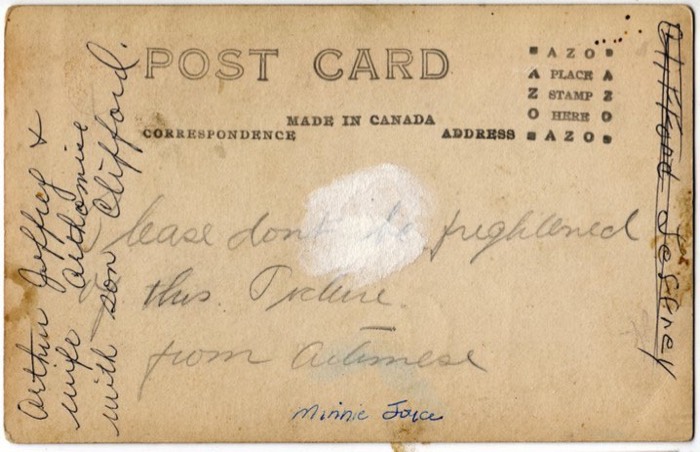 POST CARD
MADE IN CANADA
CORRESPONDENCE
ADDRESS
AZO
A PLACE A
Z STAMP Z
O HERE O
AZO
Arthur Jeffrey &
wife Arthamise
with son Clifford.
lease dont be frightened
this Picture
from Artimese
Minnie Joyce
Clifford Jeffrey